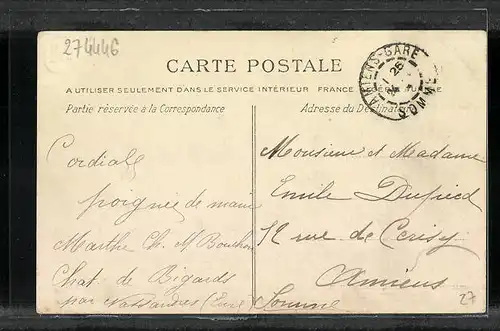 274446
AMIENS-GARE
26
SOMME
CARTE POSTALE
A UTILISER SEULEMENT DANS LE SERVICE INTÉRIEUR FRANCE
Partie réservée à la Correspondance
Adresse du Destinataire
Cordiale
poignée de main
Marthe Ch. M Bouchon
Chat. de Bigards
par Nassandres (Eure)
Monsieur et Madame
Emile Dupied
12 rue de Cerisy
Amiens
Somme
27